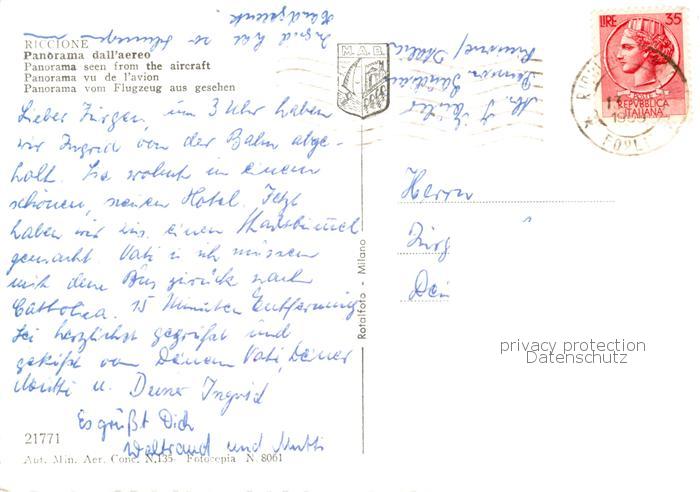 RICCIONE
Panorama dall'aereo
Panorama seen from the aircraft
Panorama vu de l'avion
Panorama vom Flugzeug aus gesehen
Lieber Jürgen, um 3 Uhr haben
wir Ingrid von der Bahn abge-
holt. Sie wohnt in einem
schönen, neuen Hotel. Jetzt
haben wir einen Stadtbummel
gemacht. Vati u. ich müssen
mit dem Bus zurück nach
Cattolica. 15 Minuten Entfernung
Sei herzlichst gegrüßt und
geküßt von Deinem Vati, Deiner
Mutti u. Deiner Ingrid
Es grüßt Dich
Waltraud und Mutti
21771
Aut. Min. Aer. Conc. N.135 - Fotocepia N 8061
Ingrid hat so
M.A.B.
Rotalfoto - Milano
Riccione / Italia
LIRE 35
REPUBBLICA
ITALIANA
Herrn
Jürg
Dei
privacy protection
Datenschutz